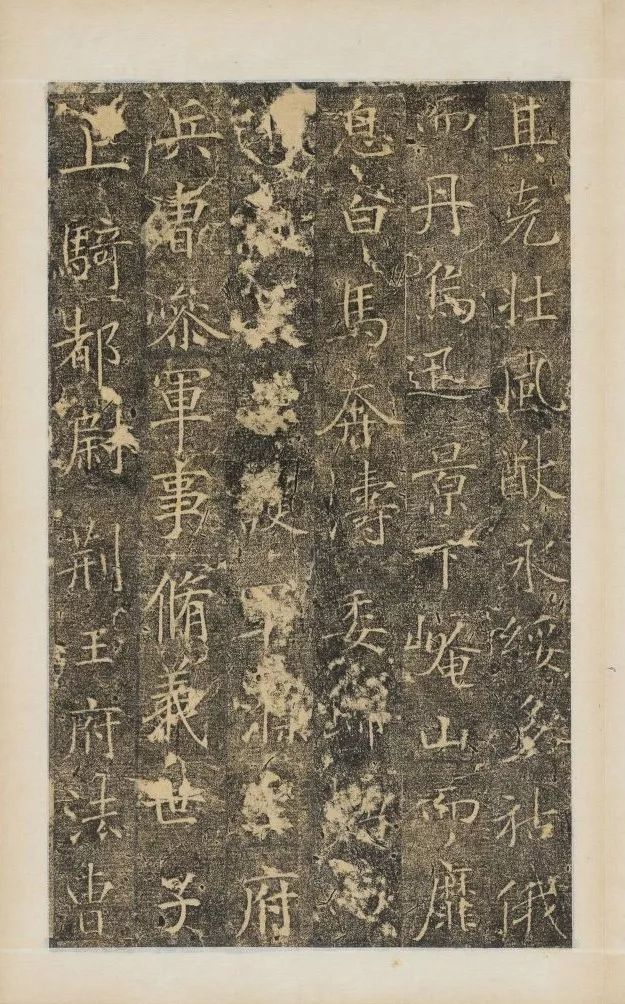 其克壯威猷永綏多祜俄
而丹烏迅景下崦山而靡
息白馬奔濤委歸
府
兵曹參軍事脩義世子
上騎都尉荊王府法曹